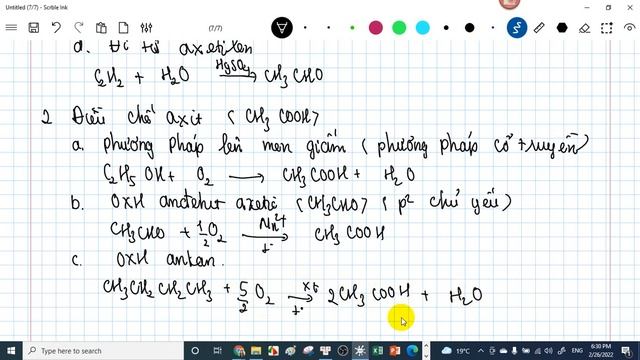 Untitled (7/7) - Scrible Ink
(7/7)
d. Đc từ axetilen
C₂H₂ + H₂O HgSO₄→ CH₃CHO
2 Điều chế axit (CH₃COOH)
a. phương pháp lên men giấm (phương pháp cổ truyền)
C₂H₅OH + O₂ → CH₃COOH + H₂O
b. OXH anđehit axetic (CH₃CHO) (p² chủ yếu)
CH₃CHO + 1/2 O₂ Mn²⁺ t°→ CH₃COOH
c. OXH ankan.
CH₃CH₂CH₂CH₃ + 5/2 O₂ xt t°→ 2CH₃COOH + H₂O
19°C
6:30 PM
2/26/2022